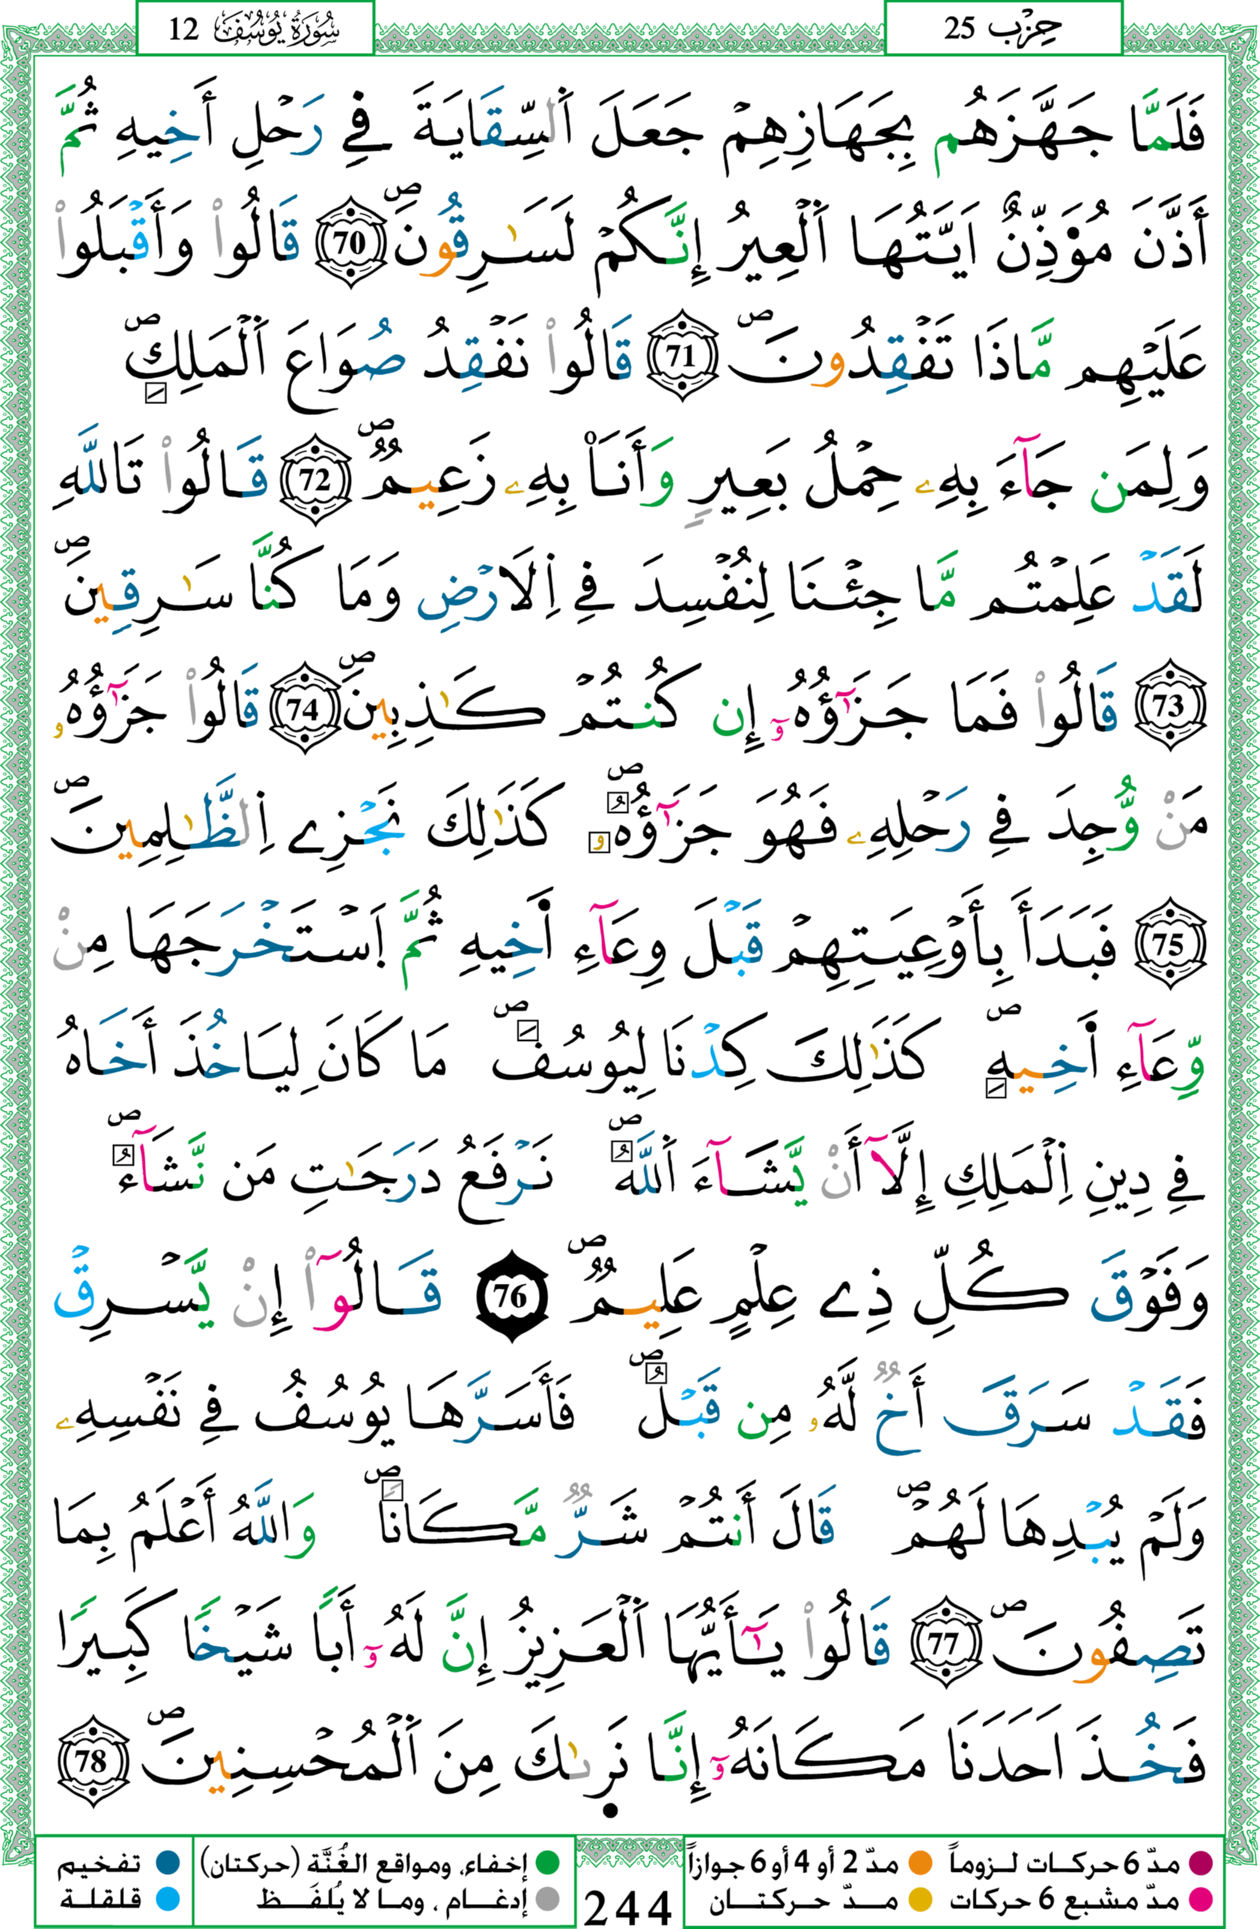 سُورَةُ يُوسُفَ 12
حِزْب 25
فَلَمَّا جَهَّزَهُم بِجَهَازِهِمْ جَعَلَ اَلسِّقَايَةَ فِے رَحْلِ أَخِيهِ ثُمَّ
أَذَّنَ مُوَ۬ذِّنٌ اَيَّتُهَا اَلْعِيرُ إِنَّكُمْ لَسَٰرِقُونَۖ 70 قَالُواْ وَأَقْبَلُواْ
عَلَيْهِم مَّاذَا تَفْقِدُونَۖ 71 قَالُواْ نَفْقِدُ صُوَاعَ اَلْمَلِكِۖ
وَلِمَن جَآءَ بِهِۦ حِمْلُ بَعِيرٖ وَأَنَا۠ بِهِۦ زَعِيمٞۖ 72 قَالُواْ تَاللَّهِ
لَقَدْ عَلِمْتُم مَّا جِئْنَا لِنُفْسِدَ فِے اِلَارْضِ وَمَا كُنَّا سَٰرِقِينَۖ
73 قَالُواْ فَمَا جَزَٰٓؤُهُۥٓ إِن كُنتُمْ كَٰذِبِينَۖ 74 قَالُواْ جَزَٰٓؤُهُۥ
مَنْ وُّجِدَ فِے رَحْلِهِۦ فَهُوَ جَزَٰٓؤُهُۥۖ كَذَٰلِكَ نَجْزِے اِلظَّٰلِمِينَۖ
75 فَبَدَأَ بِأَوْعِيَتِهِمْ قَبْلَ وِعَآءِ اَ۬خِيهِ ثُمَّ اَسْتَخْرَجَهَا مِنْ
وِّعَآءِ اَ۬خِيهِۖ كَذَٰلِكَ كِدْنَا لِيُوسُفَۖ مَا كَانَ لِيَاخُذَ أَخَاهُ
فِے دِينِ اِلْمَلِكِ إِلَّآ أَنْ يَّشَآءَ اَللَّهُۖ نَرْفَعُ دَرَجَٰتِ مَن نَّشَآءُۖ
وَفَوْقَ كُلِّ ذِے عِلْمٍ عَلِيمٞۖ 76 قَالُوٓاْ إِنْ يَّسْرِقْ
فَقَدْ سَرَقَ أَخٞ لَّهُۥ مِن قَبْلُۖ فَأَسَرَّهَا يُوسُفُ فِے نَفْسِهِۦ
وَلَمْ يُبْدِهَا لَهُمْۖ قَالَ أَنتُمْ شَرّٞ مَّكَاناٗۖ وَاللَّهُ أَعْلَمُ بِمَا
تَصِفُونَۖ 77 قَالُواْ يَٰٓأَيُّهَا اَلْعَزِيزُ إِنَّ لَهُۥٓ أَباٗ شَيْخاٗ كَبِيراٗ
فَخُذَ اَحَدَنَا مَكَانَهُۥٓ إِنَّا نَر۪ىٰكَ مِنَ اَلْمُحْسِنِينَۖ 78
مدّ 6 حركات لـزوماً مدّ 2 أو 4 أو 6 جوازاً إخفاء، ومواقع الغُنَّة (حركتان) تفخيم
مدّ مشبع 6 حركات مـدّ حركتـان إدغـام ، ومـا لا يُلفَـظ قلقلة
244